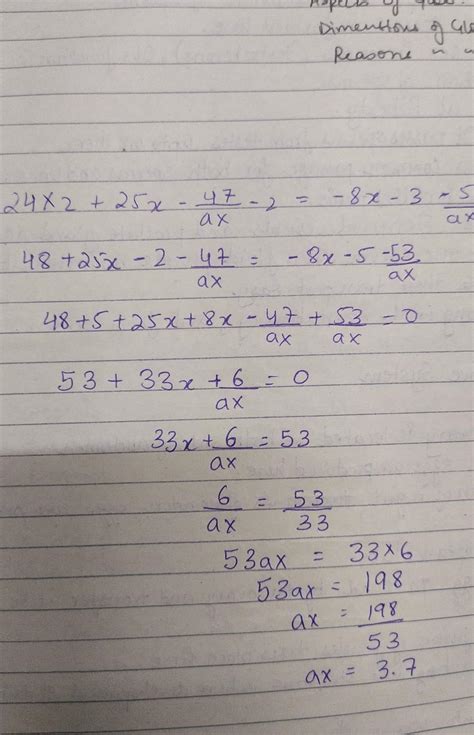 Aspects of
Dimensions of Glo
Reasons
24×2 + 25x - 47/ax - 2 = -8x - 3 - 5/ax
48 + 25x - 2 - 47/ax = -8x - 5 - 53/ax
48 + 5 + 25x + 8x - 47/ax + 53/ax = 0
53 + 33x + 6/ax = 0
33x + 6/ax = 53
6/ax = 53/33
53ax = 33×6
53ax = 198
ax = 198/53
ax = 3.7